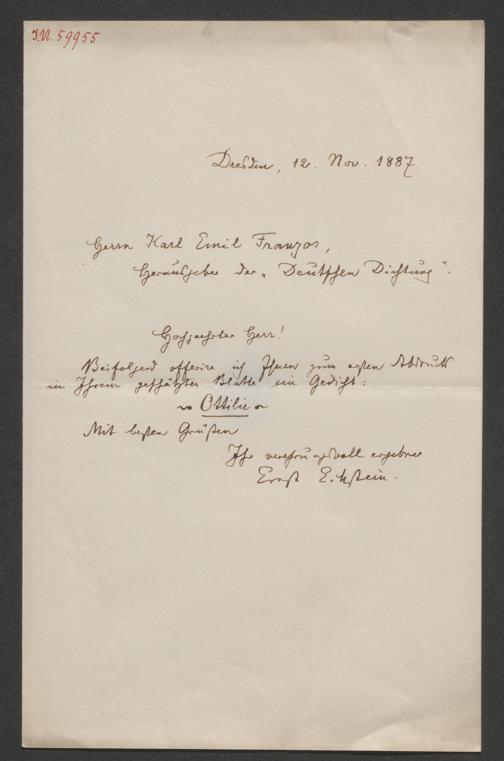 I.N. 59955
Dresden, 12. Nov. 1887.
Herrn Karl Emil Franzos,
Herausgeber der „Deutschen Dichtung".
Hochgeehrter Herr!
Beifolgend offerire ich Ihnen zum ersten Abdruck
in Ihrem geschätzten Blatte ein Gedicht:
~ Ottilie ~
Mit besten Grüßen
Ihr verehrungsvoll ergebener
Ernst Eckstein.